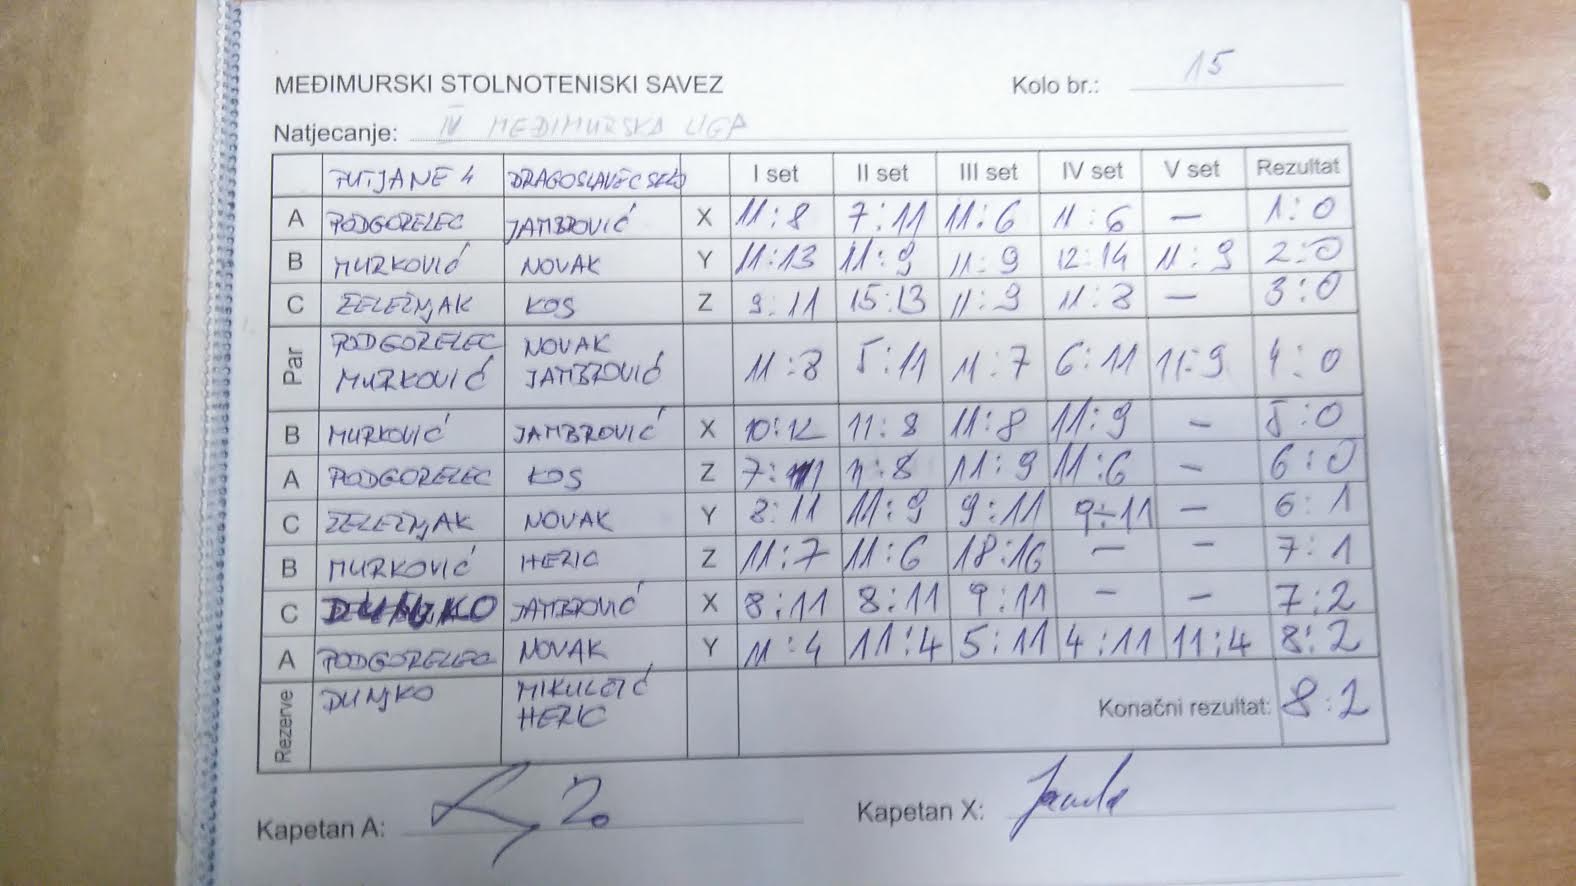 MEĐIMURSKI STOLNOTENISKI SAVEZ Kolo br.: 15
Natjecanje: IV MEĐIMURSKA LIGA
PUTJANE 4 DRAGOSLAVEC SELO I set II set III set IV set V set Rezultat
A PODGORELEC JAMBROVIĆ X 11:8 7:11 11:6 11:6 – 1:0
B MURKOVIĆ NOVAK Y 11:13 11:9 11:9 12:14 11:9 2:0
C ŽELEŽNJAK KOS Z 9:11 15:13 11:9 11:8 – 3:0
Par PODGORELEC MURKOVIĆ NOVAK JAMBROVIĆ 11:8 5:11 11:7 6:11 11:9 4:0
B MURKOVIĆ JAMBROVIĆ X 10:12 11:8 11:8 11:9 – 5:0
A PODGORELEC KOS Z 7:11 11:8 11:9 11:6 – 6:0
C ŽELEŽNJAK NOVAK Y 8:11 11:9 9:11 9:11 – 6:1
B MURKOVIĆ HERIC Z 11:7 11:6 18:16 – – 7:1
C DUNJKO JAMBROVIĆ X 8:11 8:11 9:11 – – 7:2
A PODGORELEC NOVAK Y 11:4 11:4 5:11 4:11 11:4 8:2
Rezerve DUNJKO MIKULETIĆ HERIC Konačni rezultat: 8:2
Kapetan A: Kapetan X: